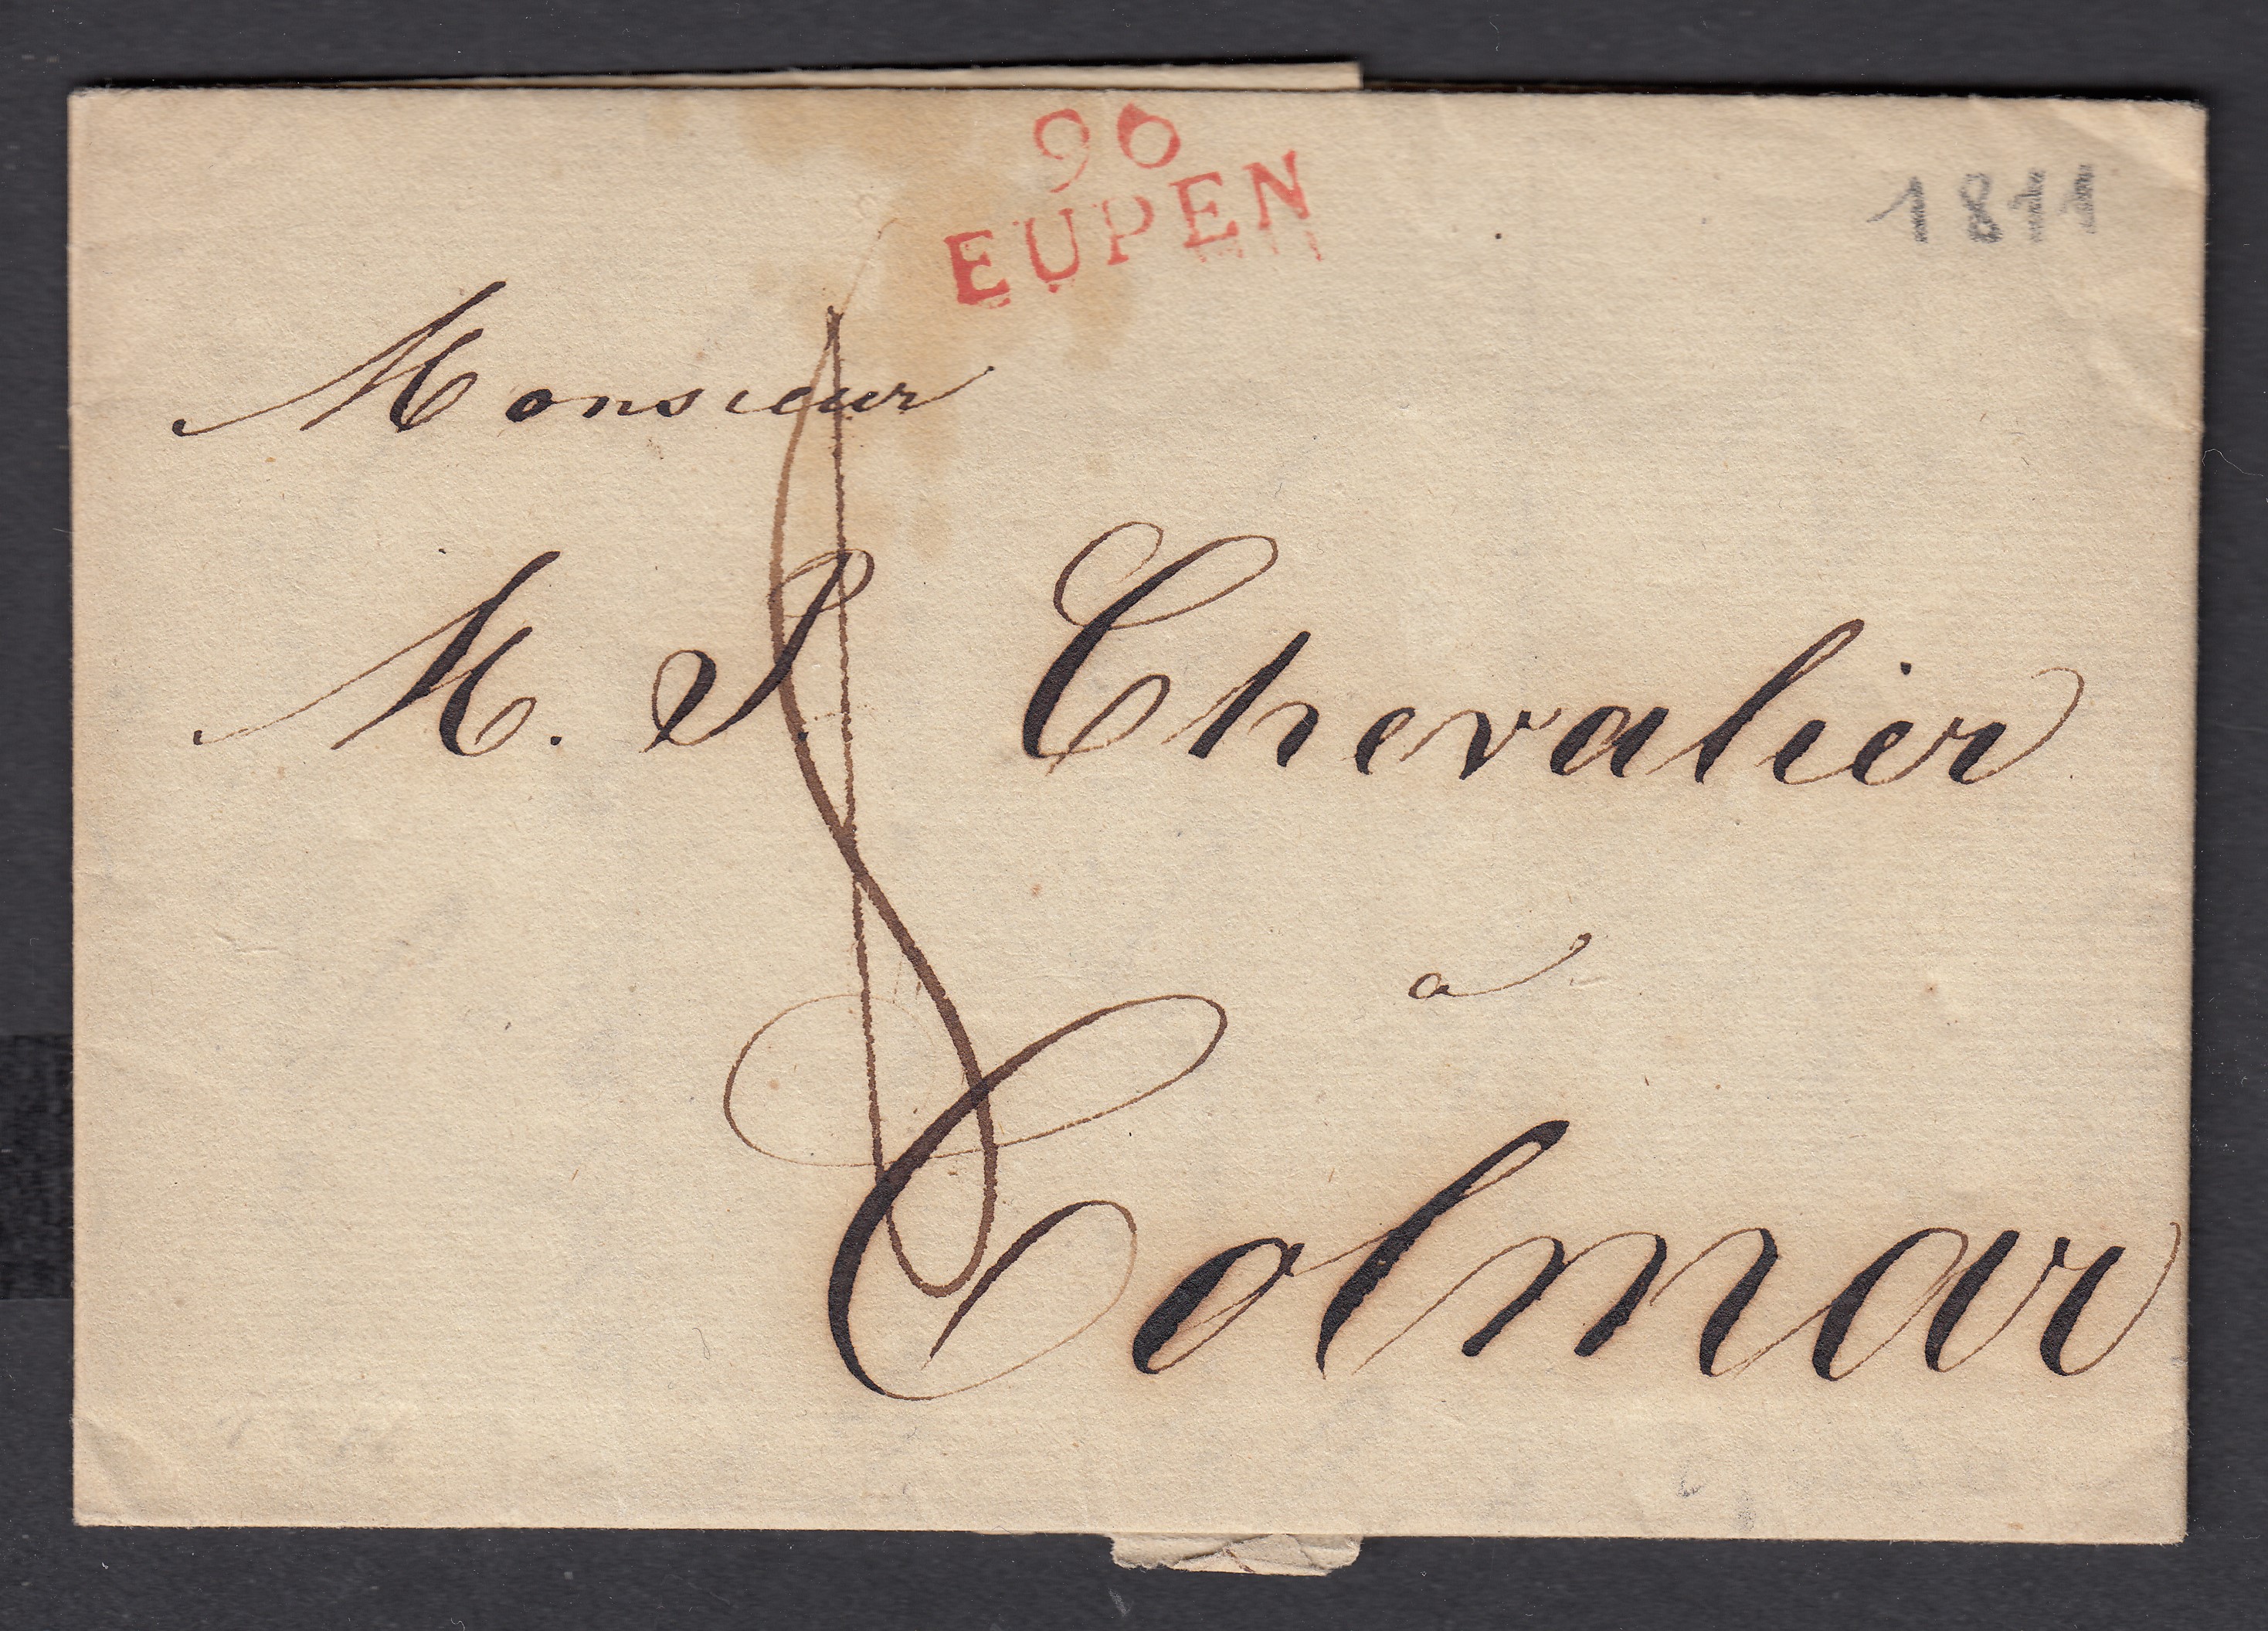 96
EUPEN
1811
Monsieur
M. S. Chevalier
a
Colmar
8